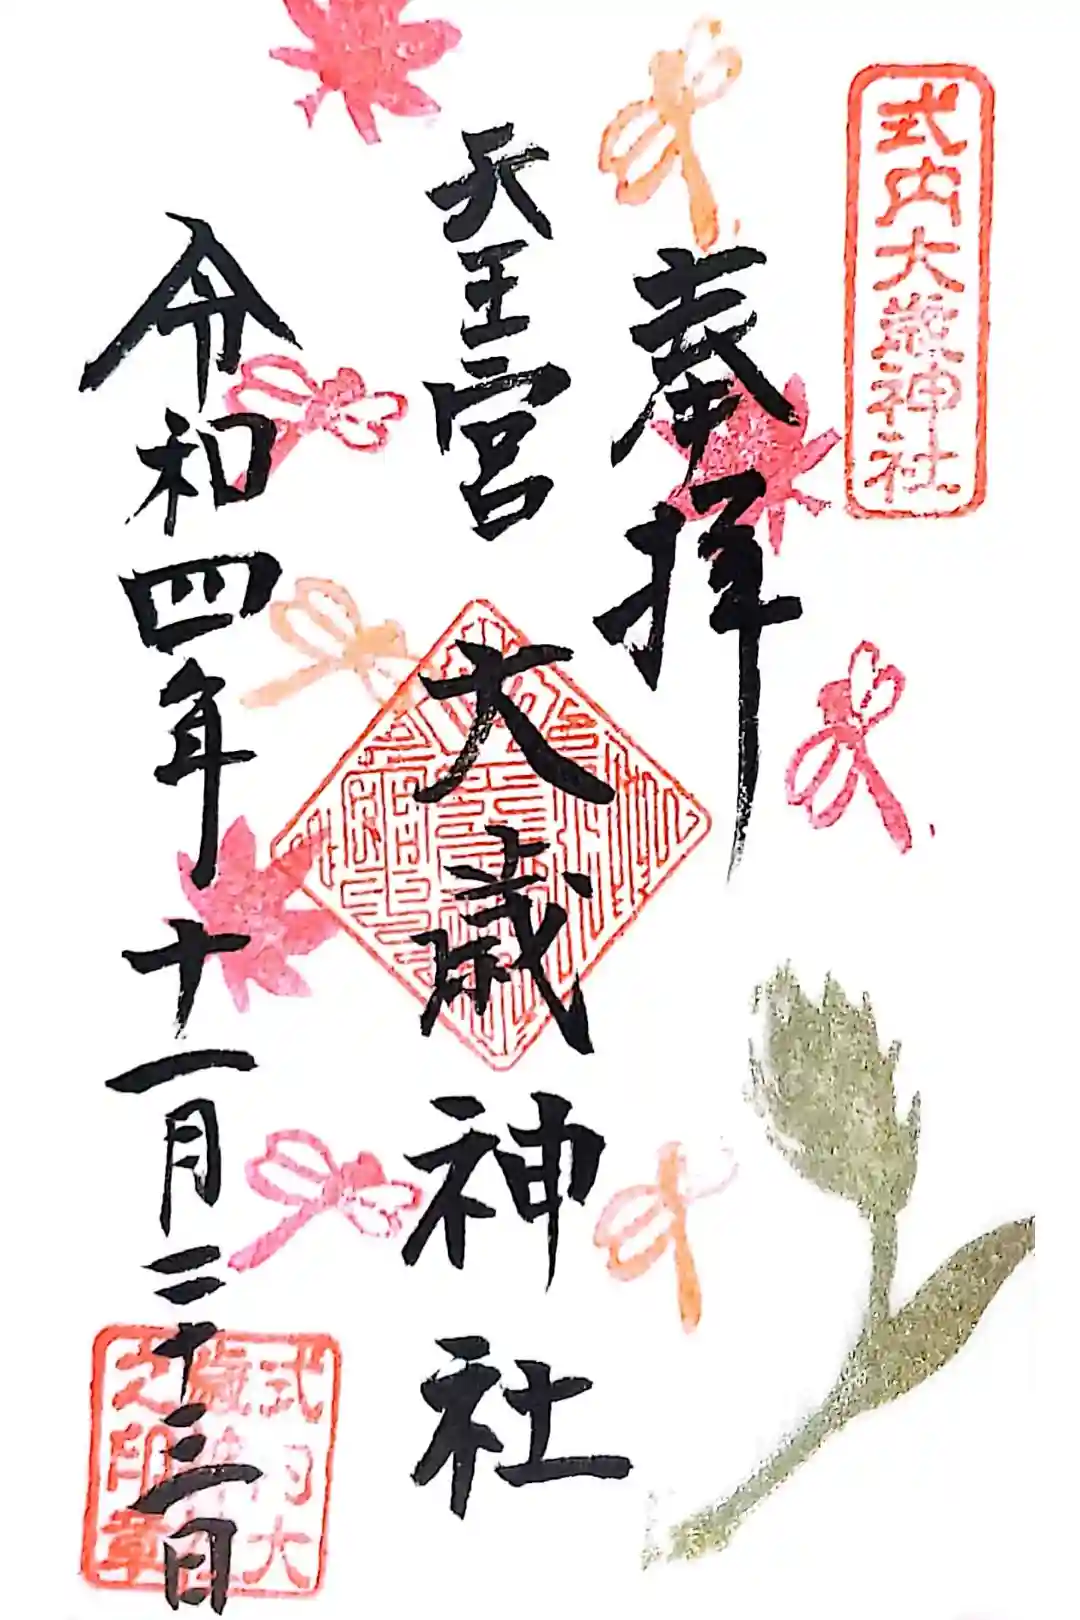 式内大歳神社
奉拝
天王宮 大歳神社
令和四年十一月二十三日
式内大
歳神社
之印章